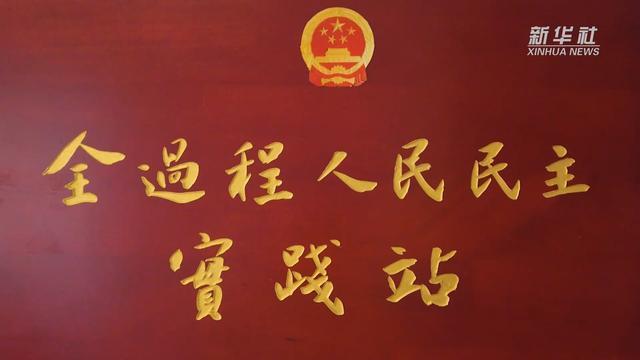 新华社
XINHUA NEWS
全過程人民民主
實踐站